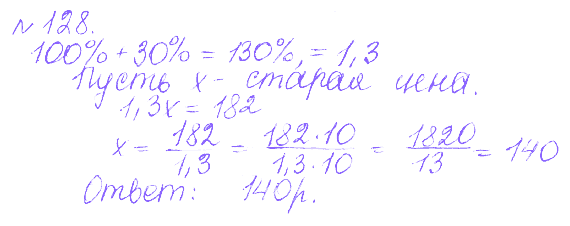 № 128.
100% + 30% = 130%, = 1,3
Пусть x - старая цена.
1,3x = 182
x = 182/1,3 = 182·10/1,3·10 = 1820/13 = 140
Ответ: 140р.